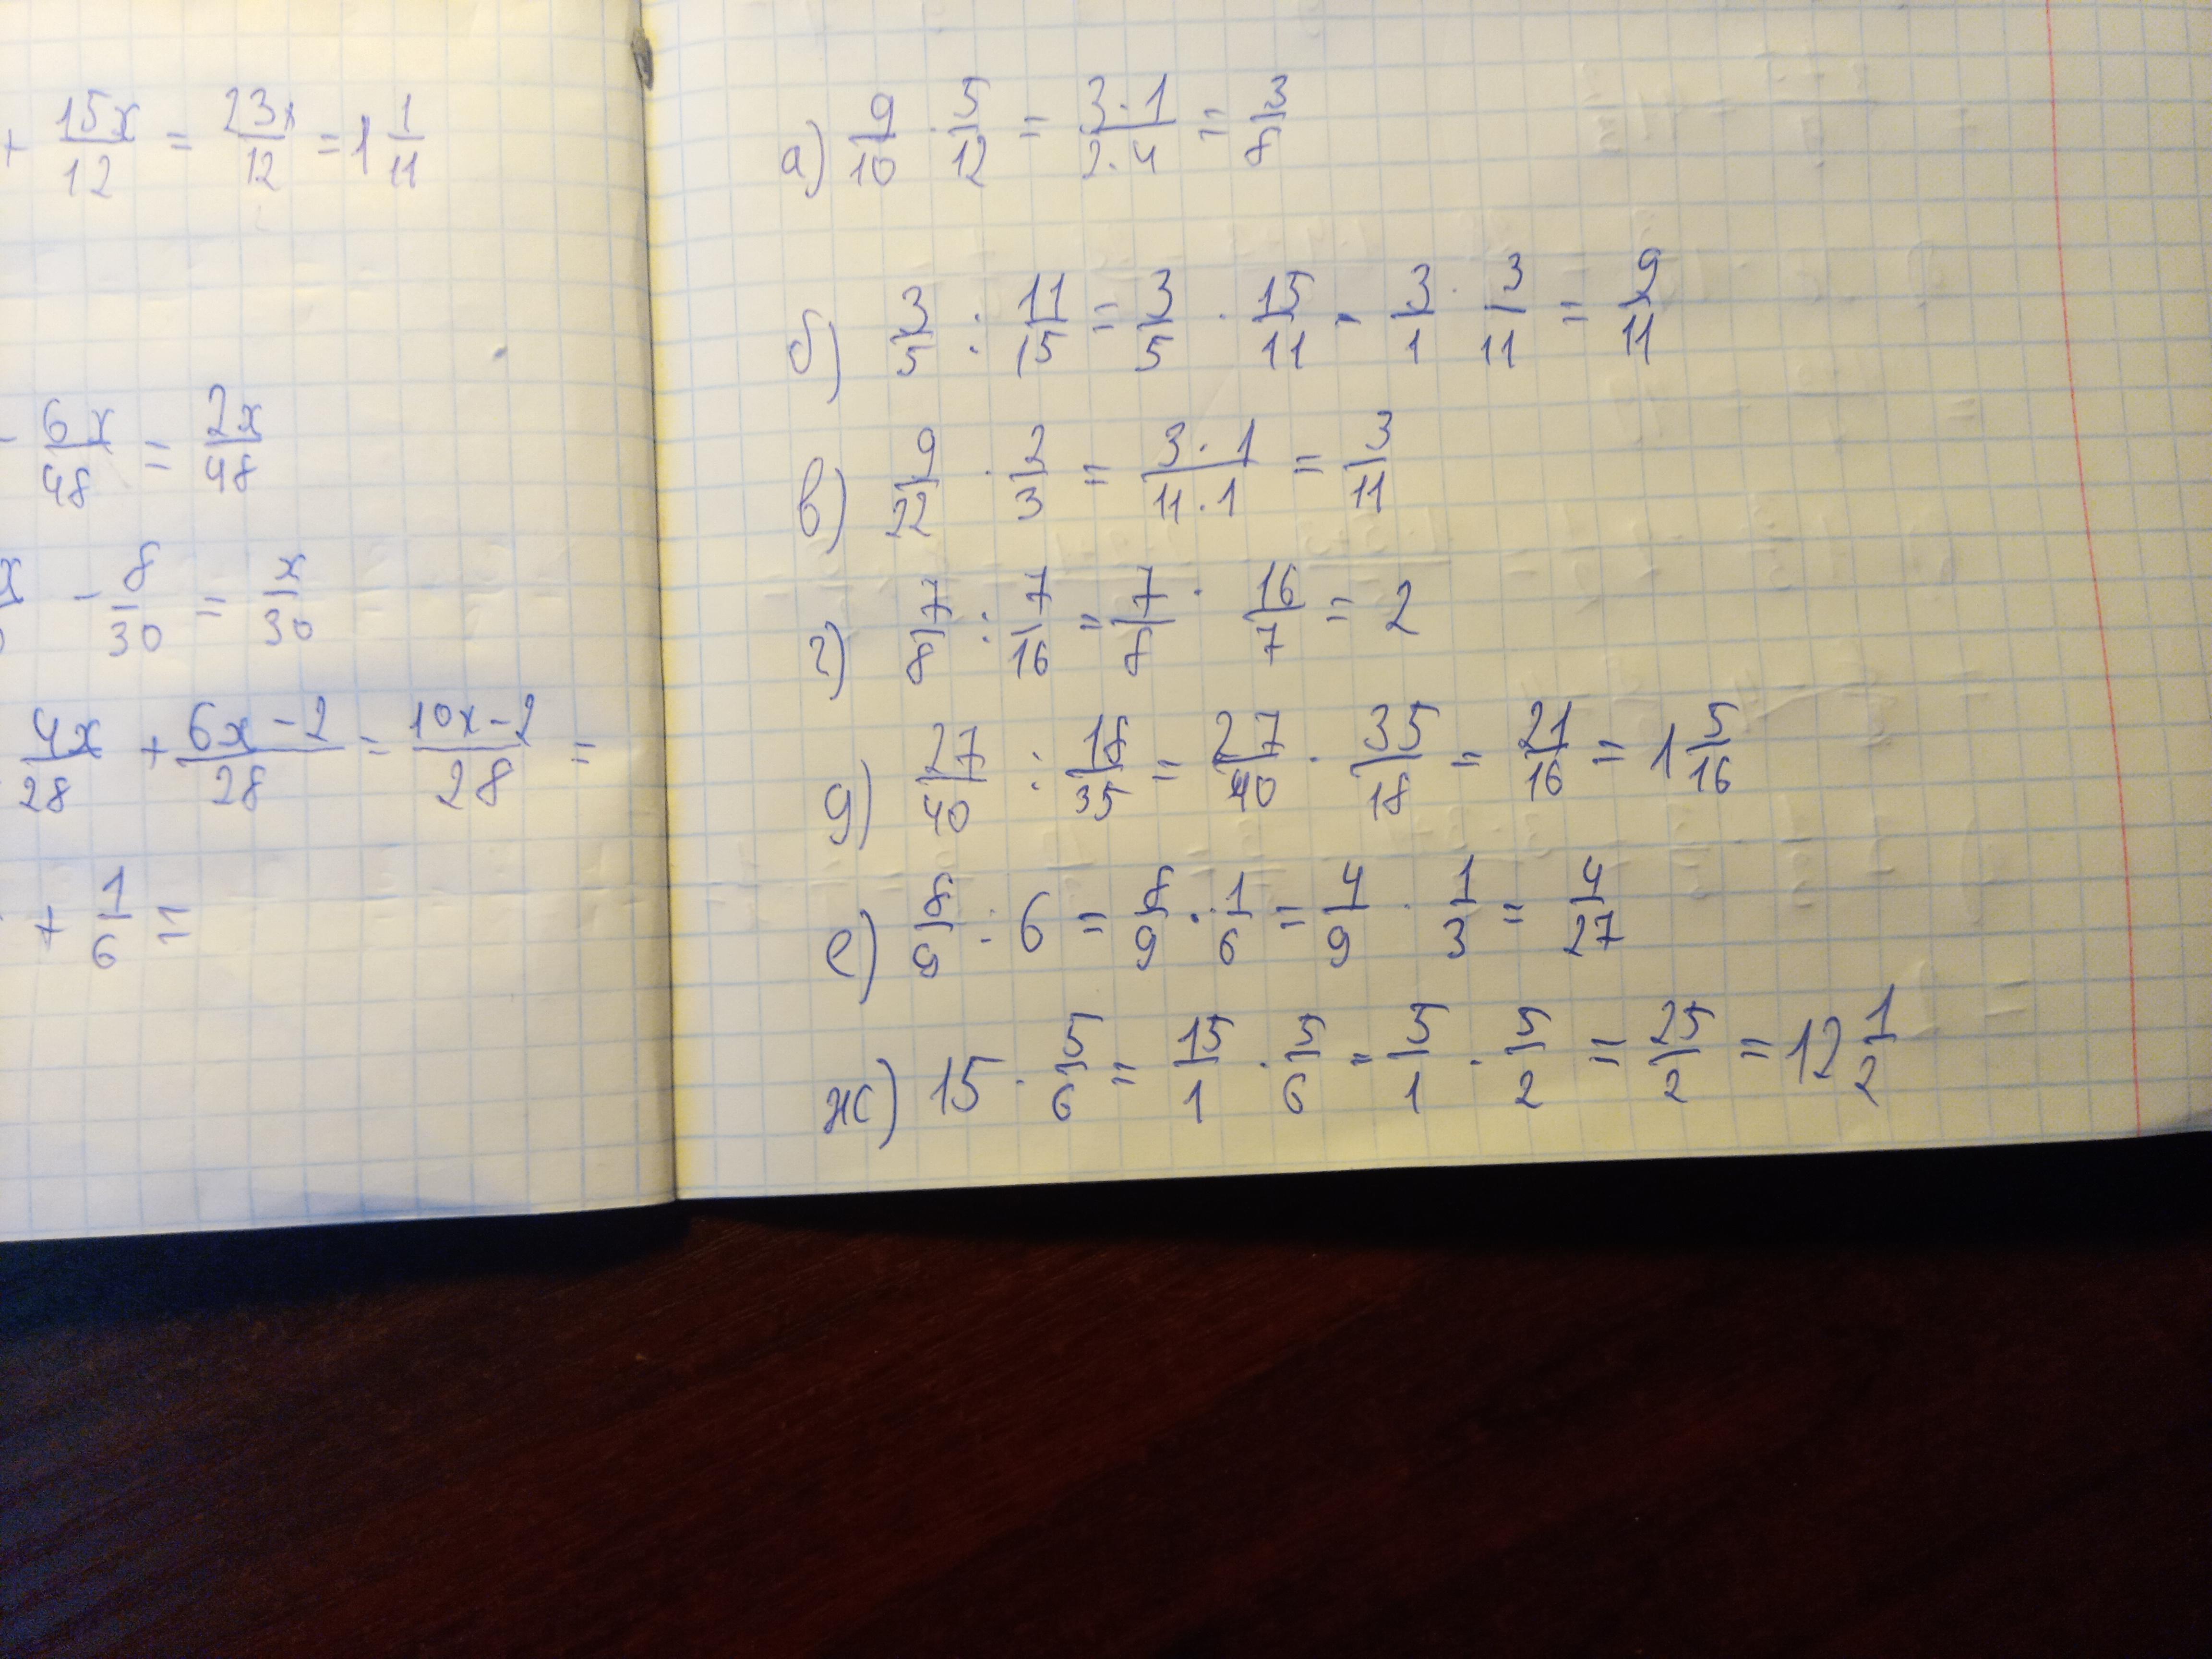 + 15x/12 = 23x/12 = 1 1/11
6x/48 = 2x/48
- 8/30 = x/30
4x/28 + 6x-2/28 = 10x-2/28 =
+ 1/6 =
а) 9/10 · 5/12 = 3·1/2·4 = 3/8
б) 3/5 : 11/15 = 3/5 · 15/11 = 3/1 · 3/11 = 9/11
в) 9/22 · 2/3 = 3·1/11·1 = 3/11
г) 7/8 : 7/16 = 7/8 · 16/7 = 2
д) 27/40 : 18/35 = 27/40 · 35/18 = 21/16 = 1 5/16
е) 8/9 : 6 = 8/9 · 1/6 = 4/9 · 1/3 = 4/27
ж) 15 · 5/6 = 15/1 · 5/6 = 5/1 · 5/2 = 25/2 = 12 1/2